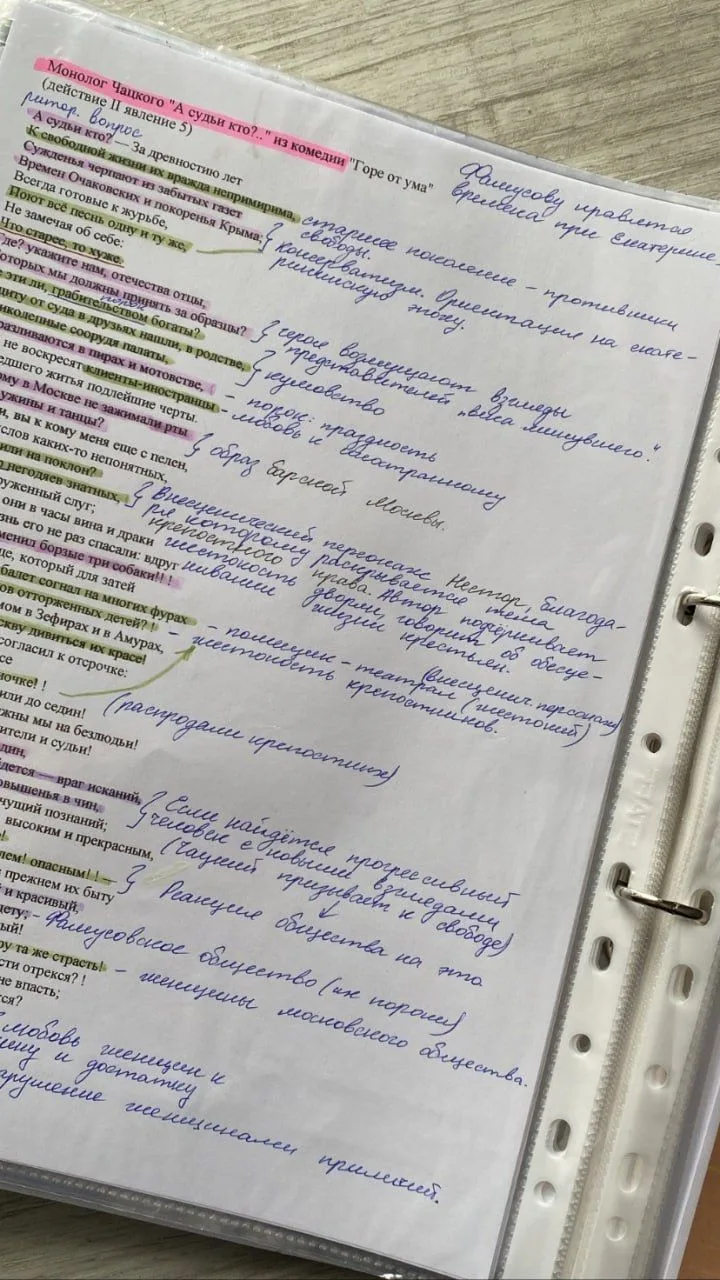 Монолог Чацкого "А судьи кто?.." из комедии "Горе от ума"
(действие II явление 5)
ритор. вопрос
А судьи кто? — За древностию лет
К свободной жизни их вражда непримирима,
Сужденья черпают из забытых газет
Времен Очаковских и покоренья Крыма;
Всегда готовые к журьбе,
Поют всё песнь одну и ту же,
Не замечая об себе:
Что старее, то хуже.
Где? укажите нам, отечества отцы,
которых мы должны принять за образцы?
е эти ли, грабительством богаты?
порок
щиту от суда в друзьях нашли, в родстве,
иколепные соорудя палаты,
разливаются в пирах и мотовстве,
не воскресят клиенты-иностранцы
едшего житья подлейшие черты.
ому в Москве не зажимали рты
ужины и танцы?
и, вы к кому меня еще с пелен,
ыслов каких-то непонятных,
или на поклон?
негодяев знатных,
руженный слуг;
они в часы вина и драки
знь его не раз спасали: вдруг
менил борзые три собаки!!!
де, который для затей
балет согнал на многих фурах
ов отторженных детей?!
мом в Зефирах и в Амурах,
скву дивиться их красе!
согласил к отсрочке:
се
ночке!!
или до седин!
жны мы на безлюдьи!
ители и судьи!
дин,
йдется — враг исканий,
овышенья в чин,
чущий познаний;
высоким и прекрасным,
!
лем! опасным!! —
прежнем их быту
и красивый,
ету;
ый!
ру та же страсть!
сти отрекся?!
не впасть;
ся?
Фамусову нравятся
времена при Екатерине
старшее поколение - противники
свободы.
консерватизм. Ориентация на екате-
рининскую эпоху.
героя возмущают взгляды
представителей "века минувшего."
кумовство
- порок: праздность
- любовь к иностранному
образ барской Москвы.
Внесценический персонаж Нестор, благода-
ря которому раскрывается тема
крепостного права. Автор подчёркивает
жестокость дворян, говорит об обесце-
нивании жизни крестьян.
- помещик - театрал (внесценич. персонаж)
- жестокость крепостников. (жестокий)
(распродали крепостных)
Если найдётся прогрессивный
человек с новыми взглядами
(Чацкий призывает к свободе)
Реакция общества на это
- Фамусовское общество (их пороки)
- женщины московского общества.
любовь женщин к
и достатку
арушение женщинами приличий.